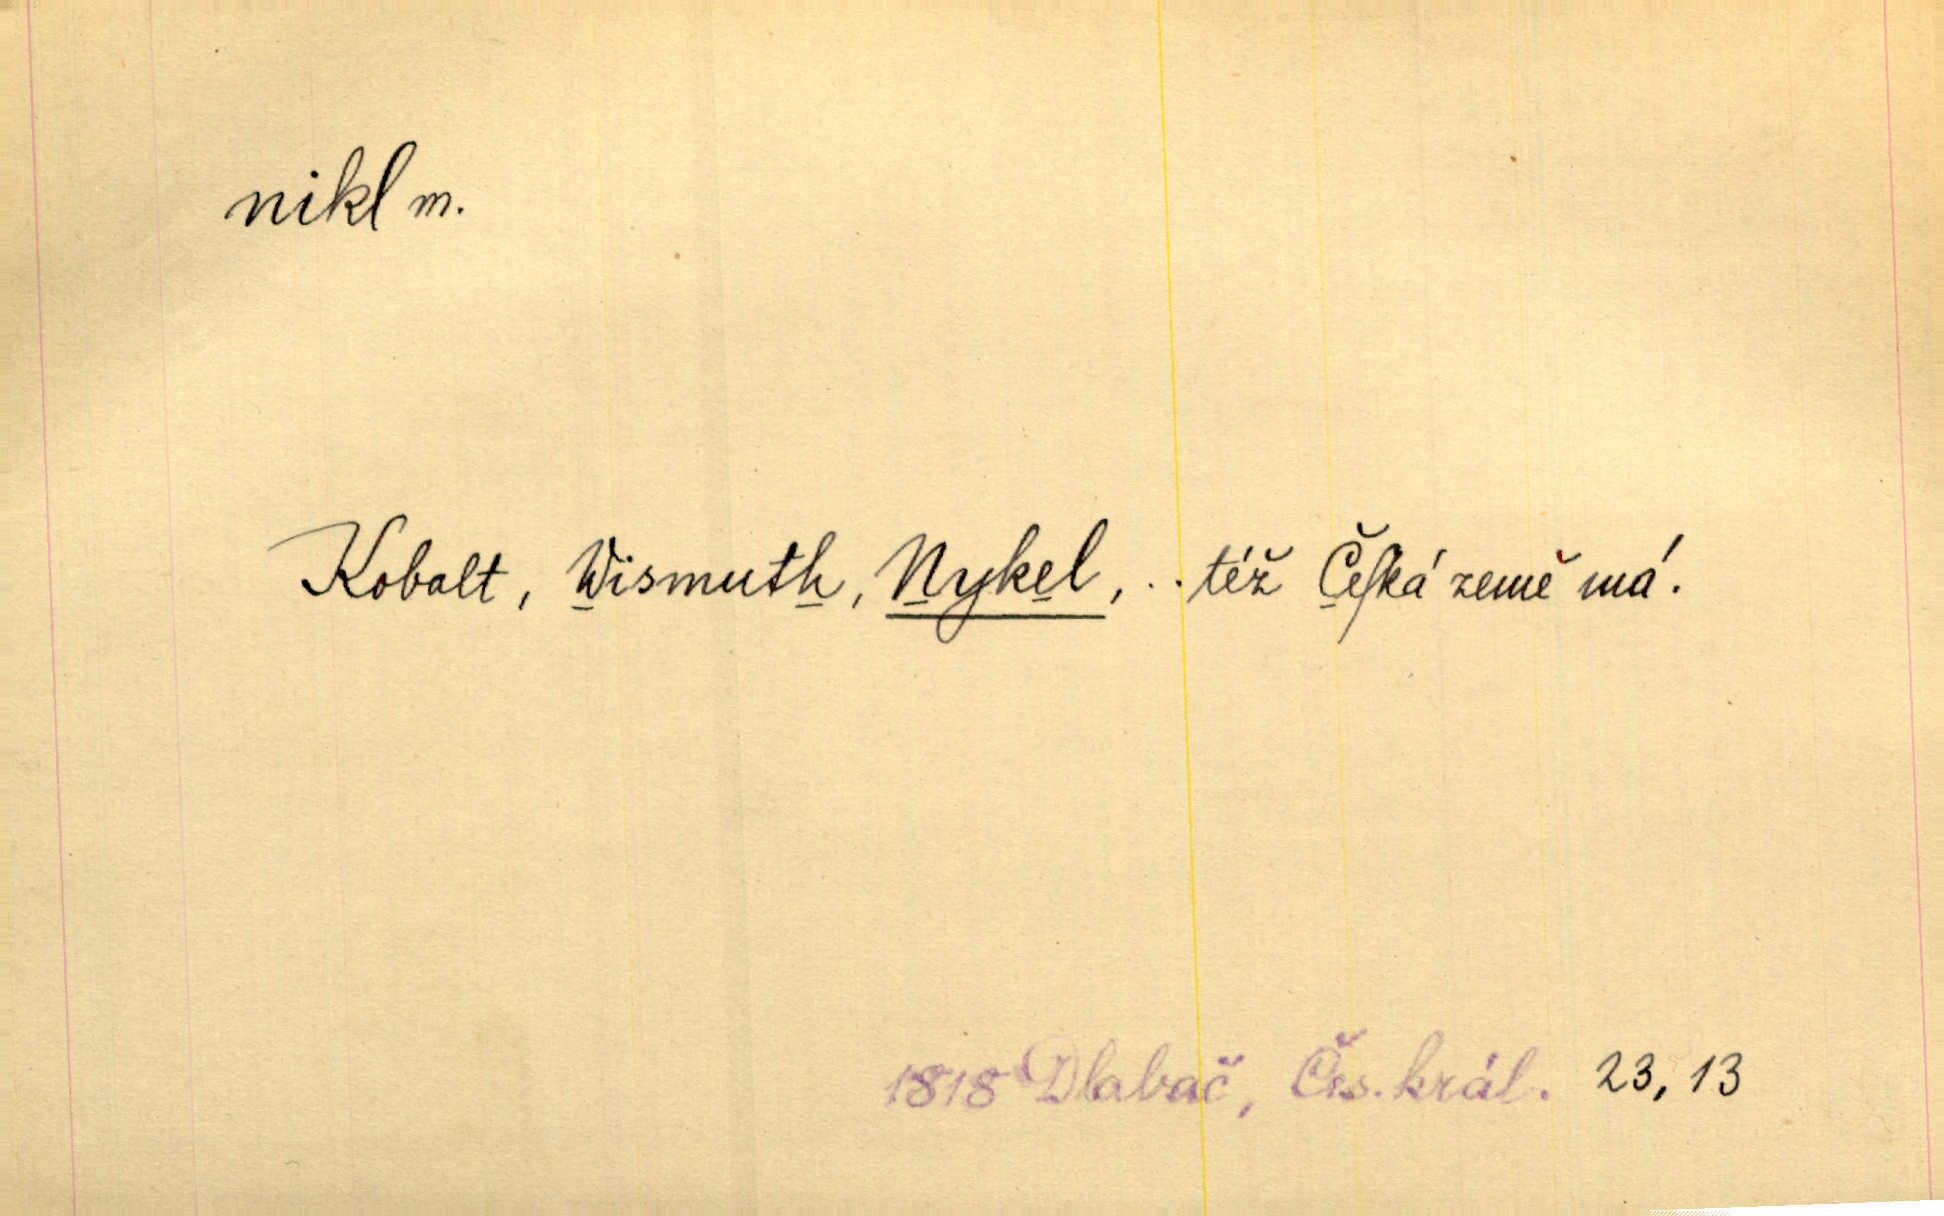 nikl m.
Kobalt, Wismuth, Nykel, .. též Čeſká země má.
1818 Dlabač, Čes. král. 23, 13